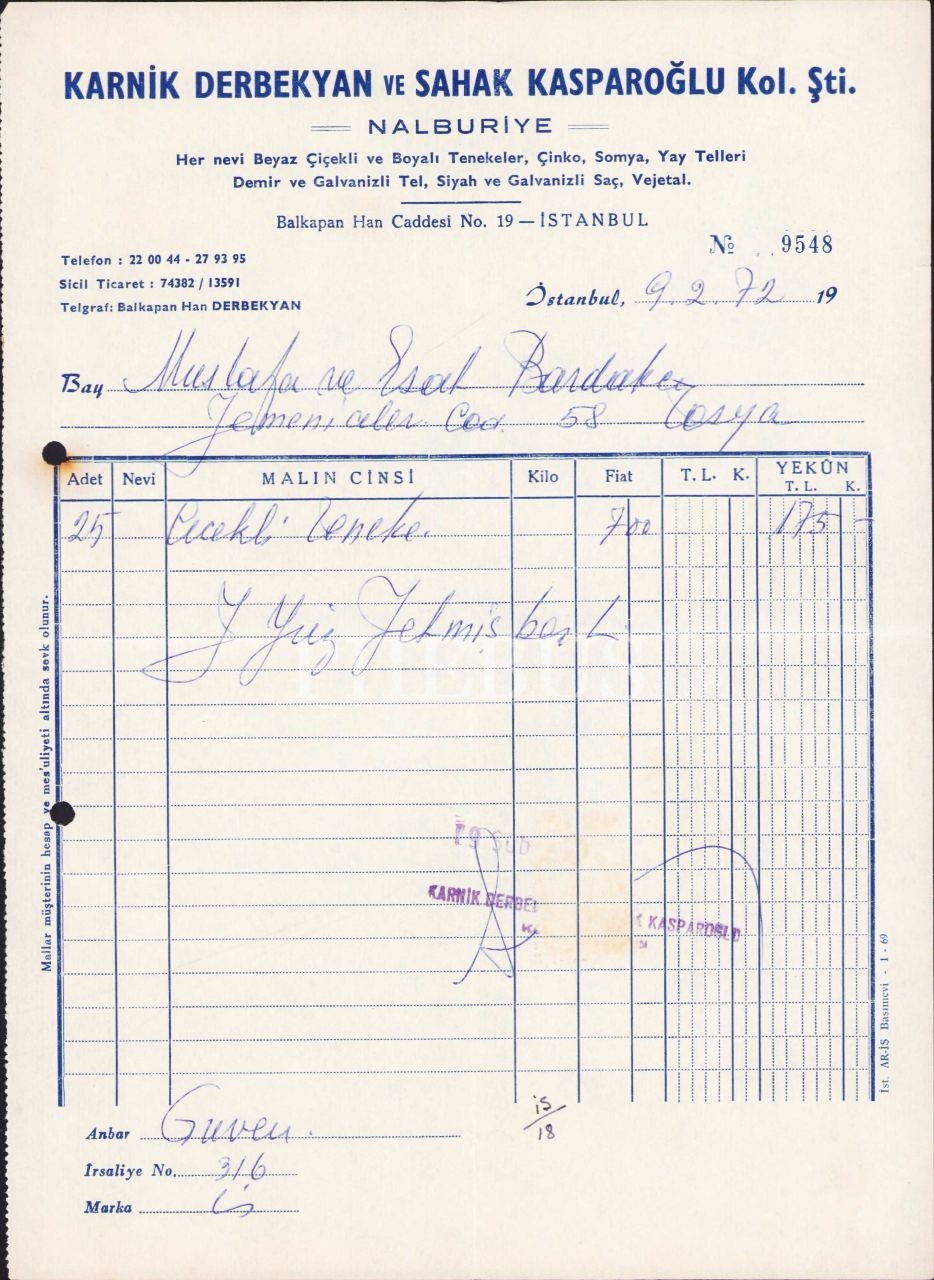 KARNİK DERBEKYAN VE SAHAK KASPAROĞLU Kol. Şti.
NALBURİYE
Her nevi Beyaz Çiçekli ve Boyalı Tenekeler, Çinko, Somya, Yay Telleri
Demir ve Galvanizli Tel, Siyah ve Galvanizli Saç, Vejetal.
Balkapan Han Caddesi No. 19 — İSTANBUL
№ 9548
Telefon : 22 00 44 - 27 93 95
Sicil Ticaret : 74382 / 13591
Telgraf: Balkapan Han DERBEKYAN
İstanbul, 9.2.72 19
Bay Mustafa ve Esat
Yemeniciler Cad. 58 Tosya
Adet Nevi MALIN CİNSİ Kilo Fiat T. L. K. YEKÛN T. L. K.
25 Çiçekli Teneke 700 175 -
Yüz Yetmiş
KARNİK
KASPAROĞLU
Mallar müşterinin hesap ve mes'uliyeti altında sevk olunur.
İst. AR-İŞ Basımevi - 1 - 69
Anbar Güven.
15/18
İrsaliye No. 316
Marka